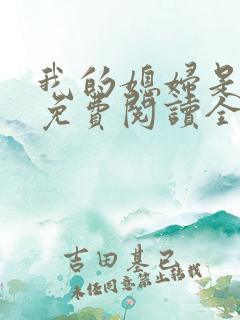 我的媳婦是
免費閱讀全
吉田基已
未经同意禁止转载